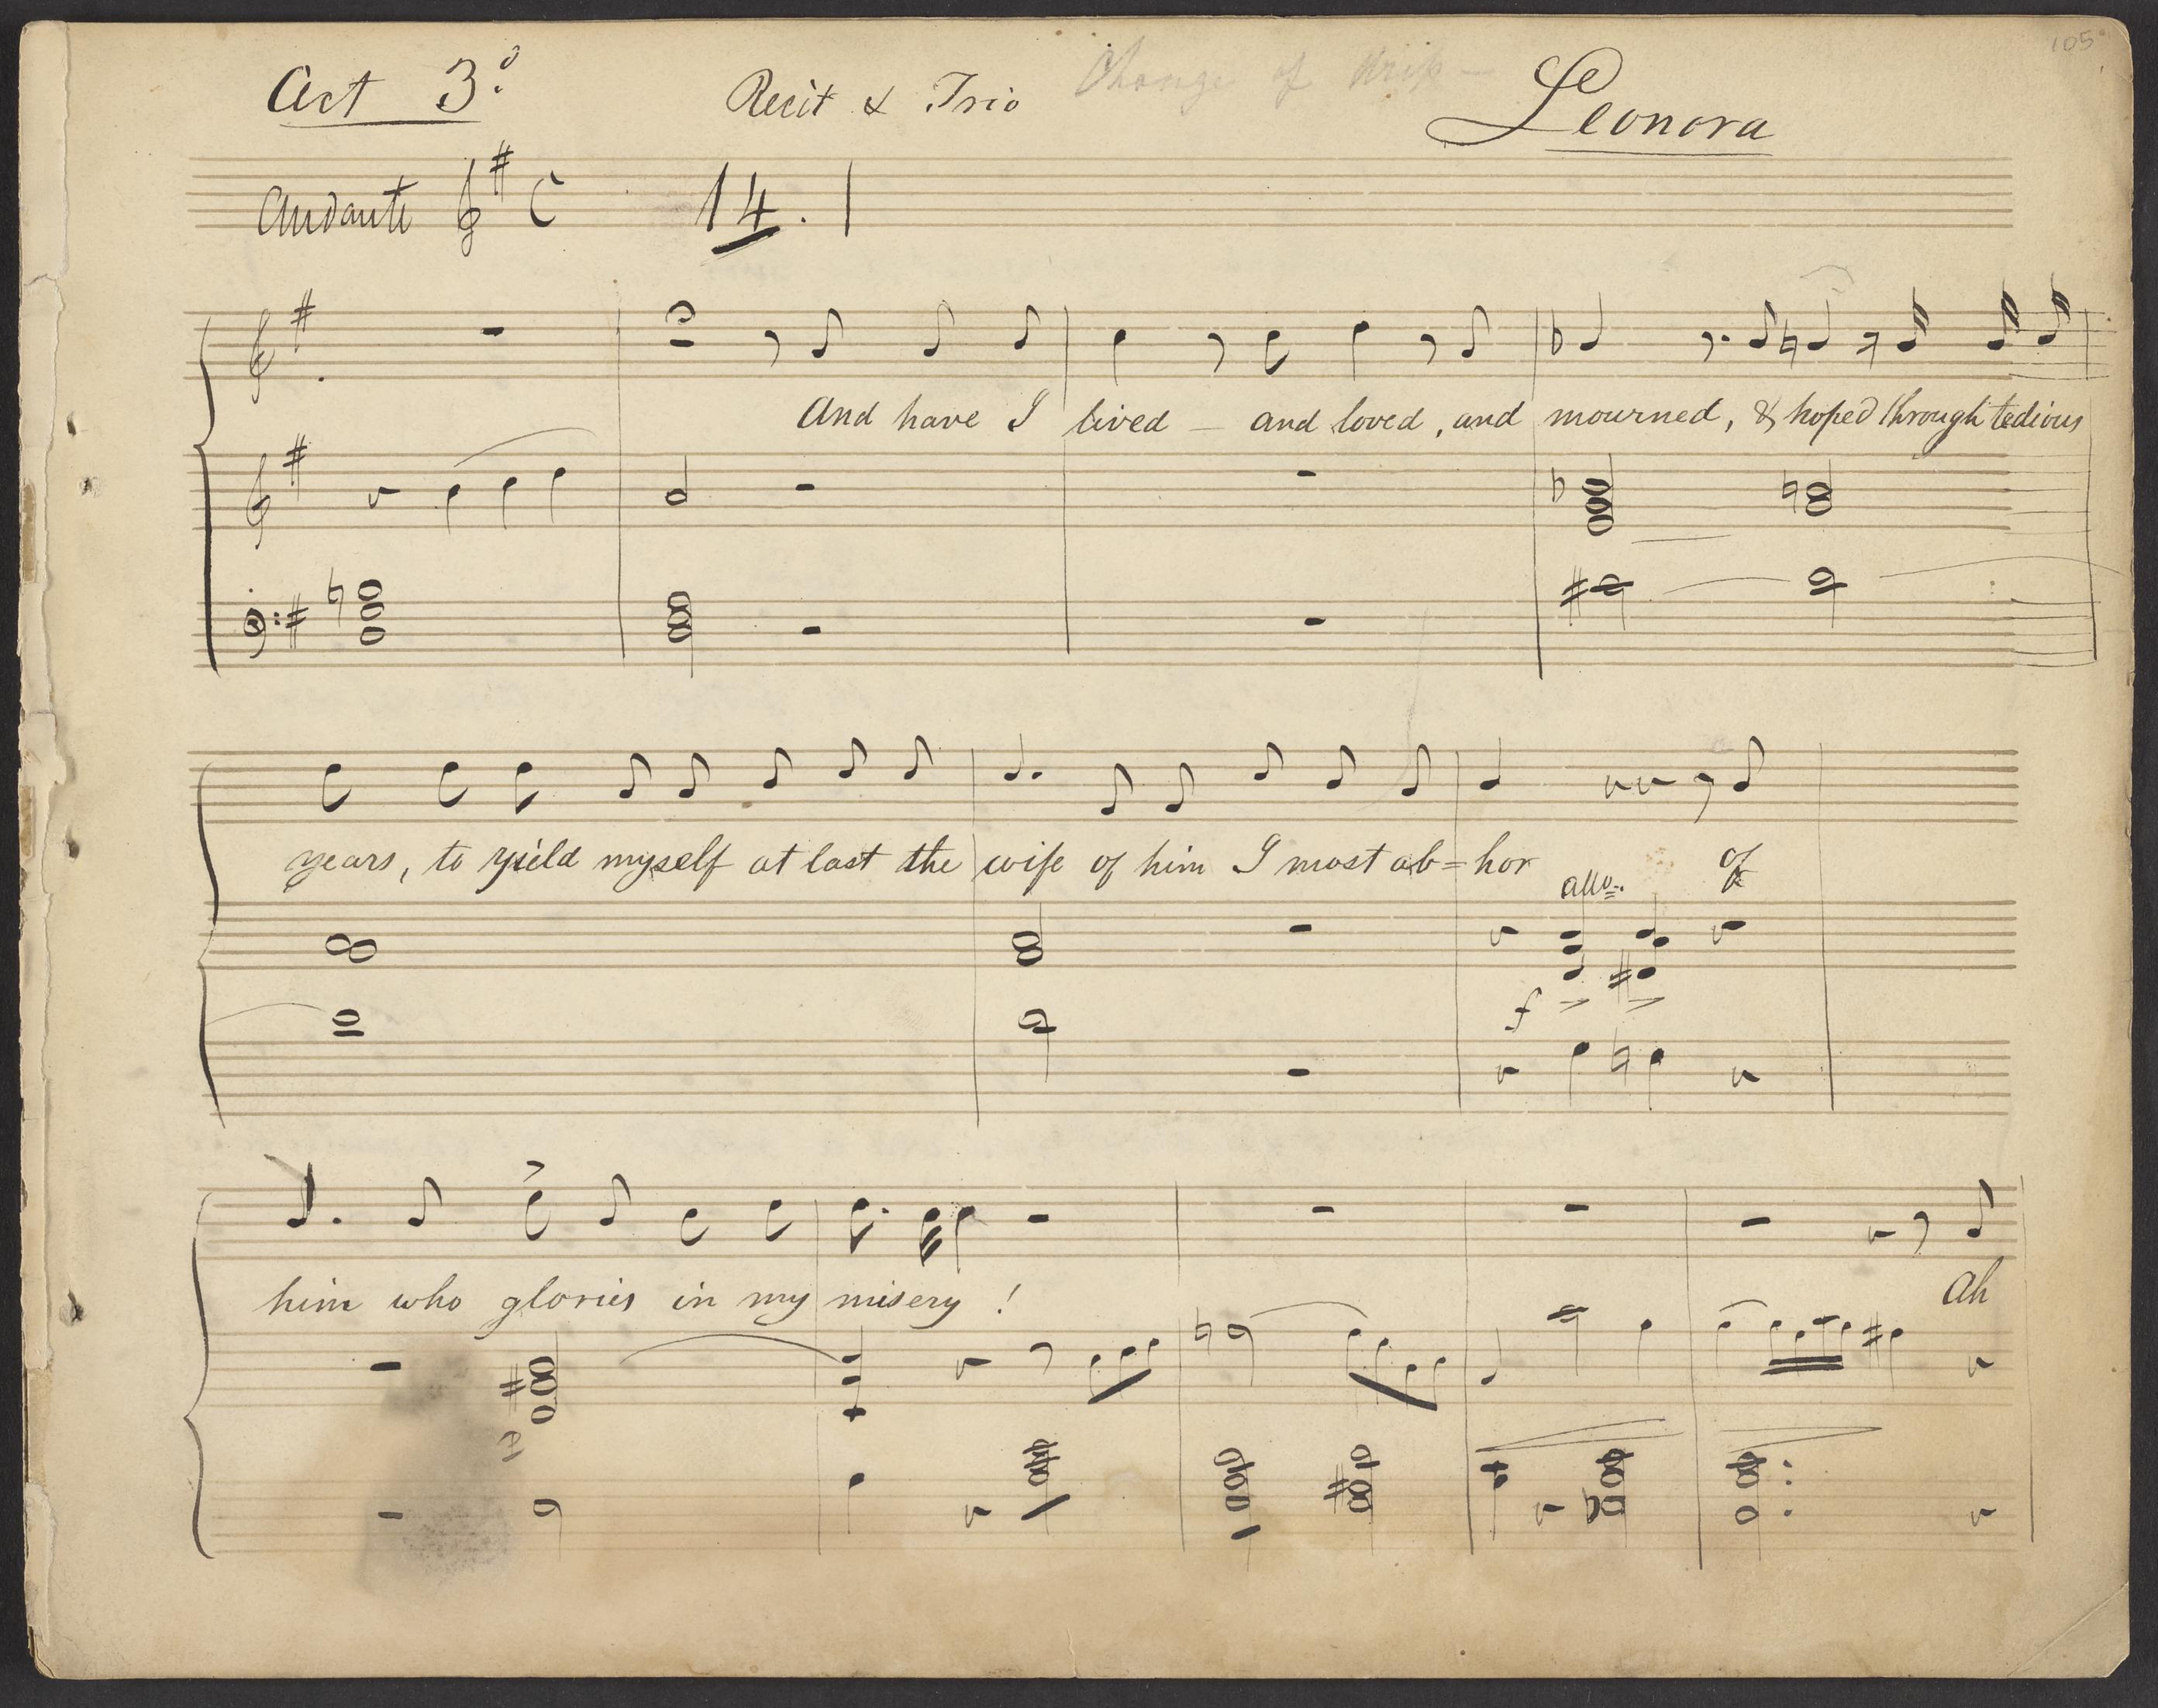 105
Act 3º Recit & Trio Change of Leonora
Andante 14.
And have I lived – and loved, and mourned, & hoped through tedious
years, to yield myself at last the wife of him I most ab=hor of
allo.
f
him who glories in my misery! Ah